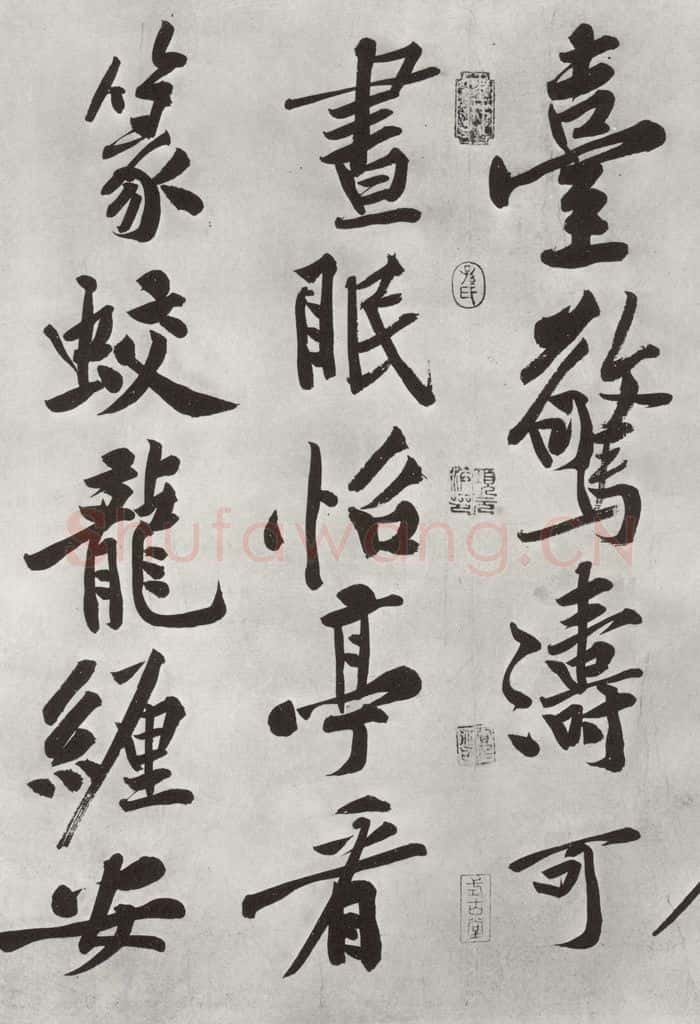 臺驚濤可
晝眠怡亭看
篆蛟龍纏安
Shufawang.CN